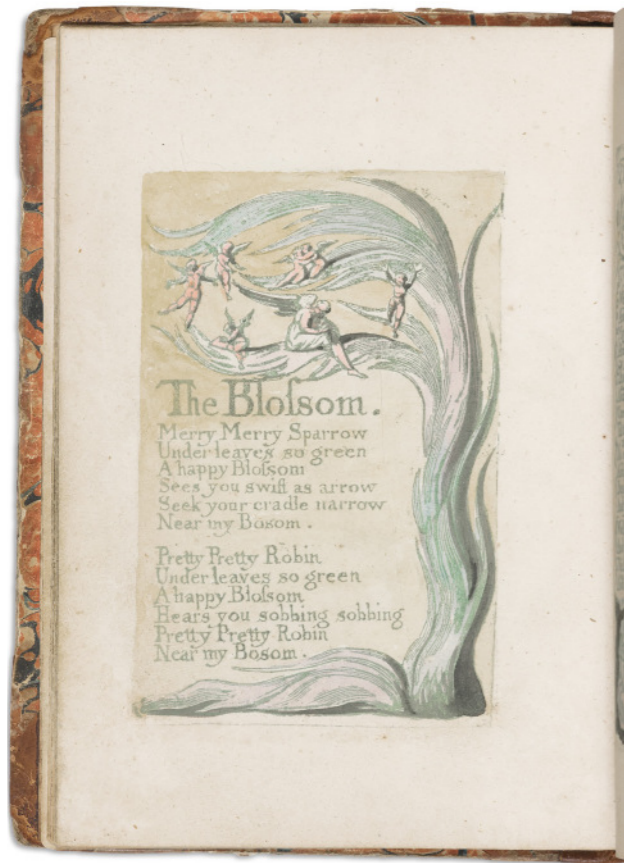 The Bloſsom.
Merry Merry Sparrow
Under leaves so green
A happy Bloſsom
Sees you swift as arrow
Seek your cradle narrow
Near my Bosom.
Pretty Pretty Robin
Under leaves so green
A happy Bloſsom
Hears you sobbing sobbing
Pretty Pretty Robin
Near my Bosom.